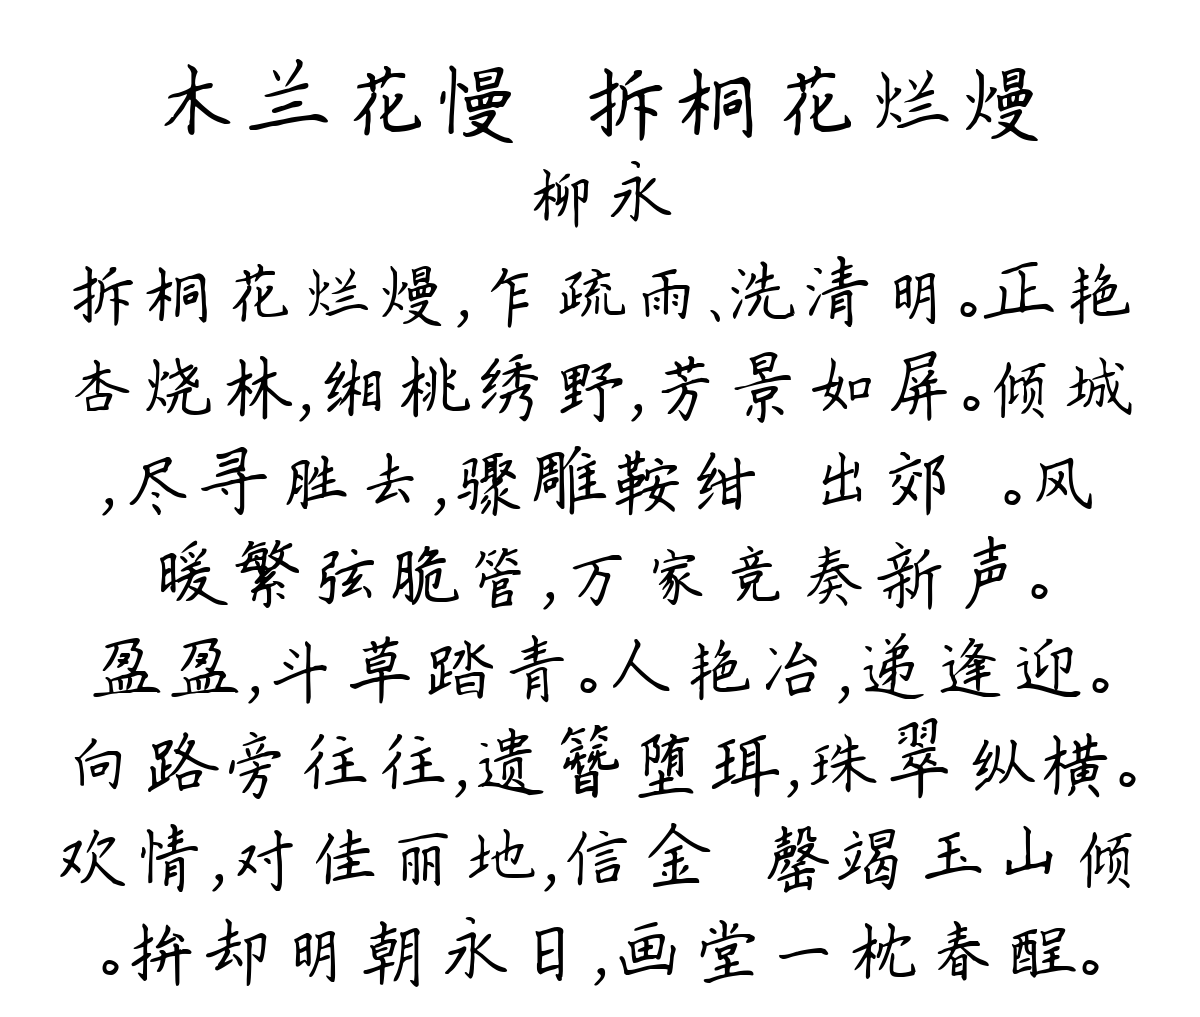 木兰花慢 拆桐花烂熳
柳永
拆桐花烂熳,乍疏雨、洗清明。正艳
杏烧林,缃桃绣野,芳景如屏。倾城
,尽寻胜去,骤雕鞍绀 出郊 。风
暖繁弦脆管,万家竞奏新声。
盈盈,斗草踏青。人艳冶,递逢迎。
向路旁往往,遗簪堕珥,珠翠纵横。
欢情,对佳丽地,信金 罄竭玉山倾
。拚却明朝永日,画堂一枕春酲。